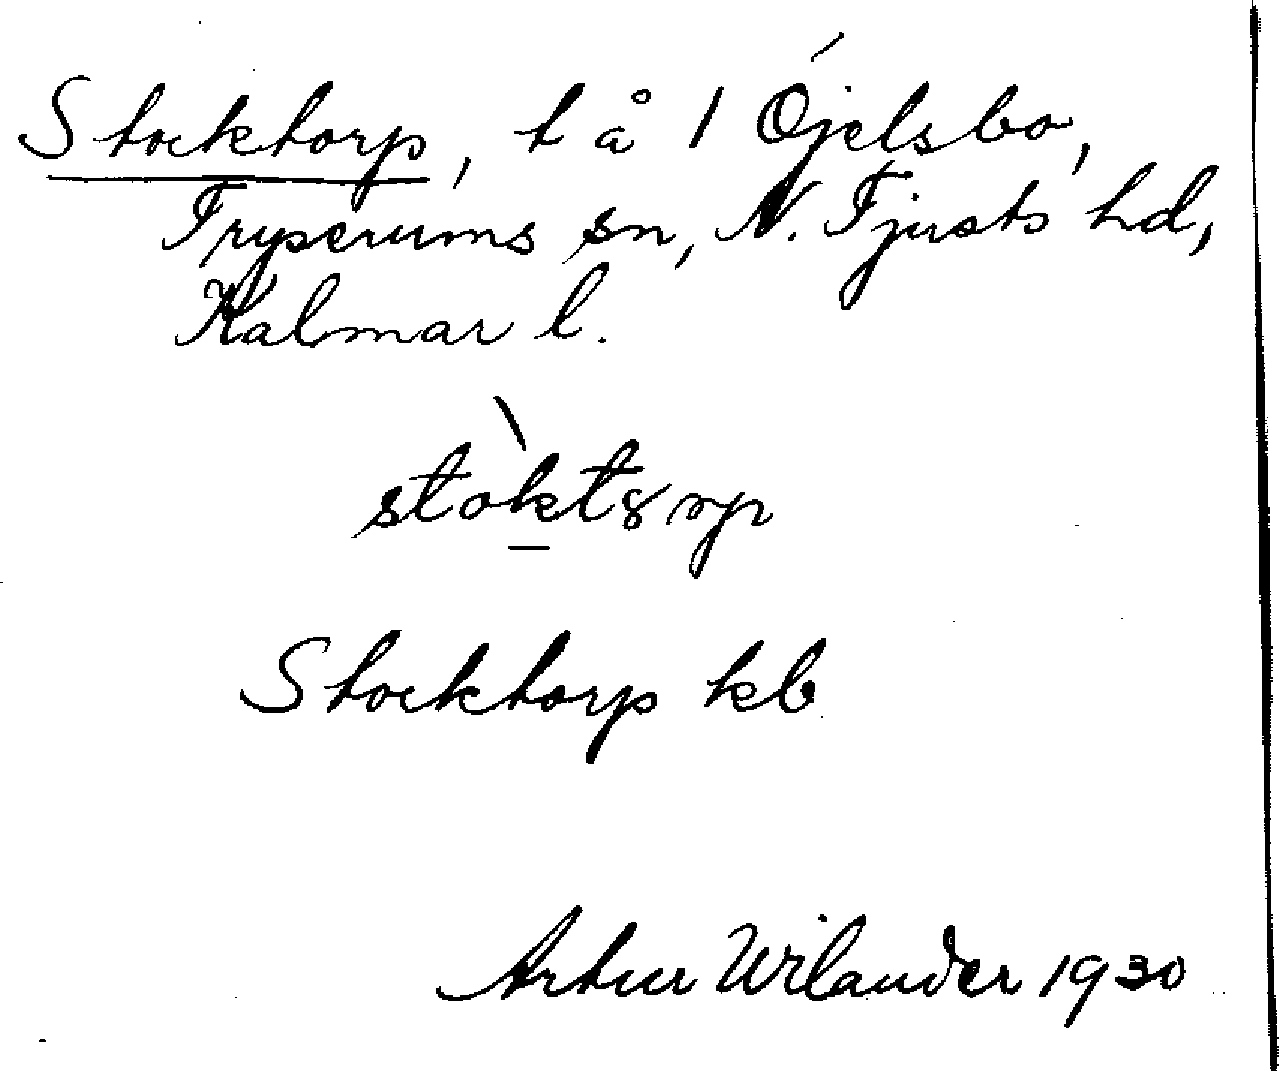 Stocktorp, t å 1 Öjelsbo,
Tryserums sn, N. Tjusts hd,
Kalmar l.
stòktȣrp
Stocktorp kb
Artur Wilander 1930